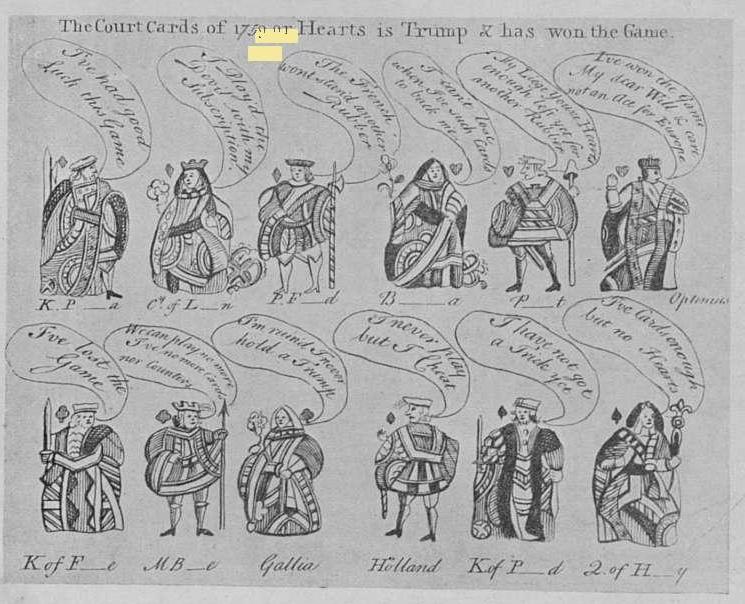 The Court Cards of 1759 or Hearts is Trump & has won the Game.
I've had good
luck this Game
I Play'd the
Devil with my
Subscription.
The French
wont stand another
Rubber
I can't lose
when I've such Cards
to back me
My Liege, you've Hearts
enough left yet for
another Rubber
I've won the Game
My dear Will & care
not an Ace for Europe
K. P__a
Cy. of L__n
P. F__d
B____a
P__t
Optimus
I've lost the
Game
We can play no more
I've no more Cards
nor Country
I'm ruin'd I never
hold a Trump
I never Play
but I Cheat
I have not got
a Trick yet
I've Cards enough
but no Hearts
K of F__e
M B__e
Gallia
Holland
K of P__d
Q. of H__y